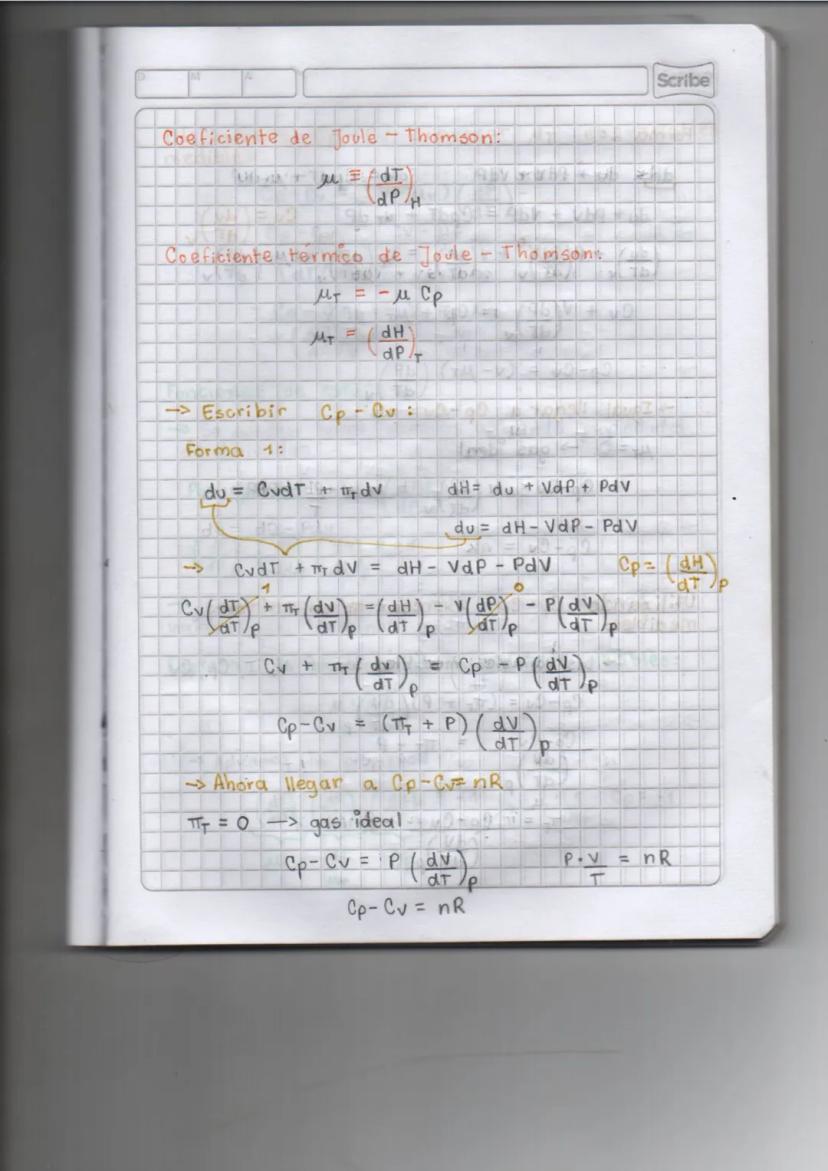 D M A
Scribe
Coeficiente de Joule - Thomson:
μ ≡ (dT/dP)_H
Coeficiente térmico de Joule - Thomson:
μ_T = - μ Cp
μ_T = (dH/dP)_T
→ Escribir Cp - Cv :
Forma 1:
du = CvdT + π_T dV dH = du + VdP + PdV
du = dH - VdP - PdV
→ CvdT + π_T dV = dH - VdP - PdV Cp = (dH/dT)_P
Cv(dT/dT)_P 1 + π_T (dV/dT)_P = (dH/dT)_P - V(dP/dT)_P 0 - P(dV/dT)_P
Cv + π_T (dV/dT)_P = Cp - P(dV/dT)_P
Cp - Cv = (π_T + P) (dV/dT)_P
→ Ahora llegar a Cp - Cv = nR
π_T = 0 → gas ideal
Cp - Cv = P (dV/dT)_P P · V/T = nR
Cp - Cv = nR